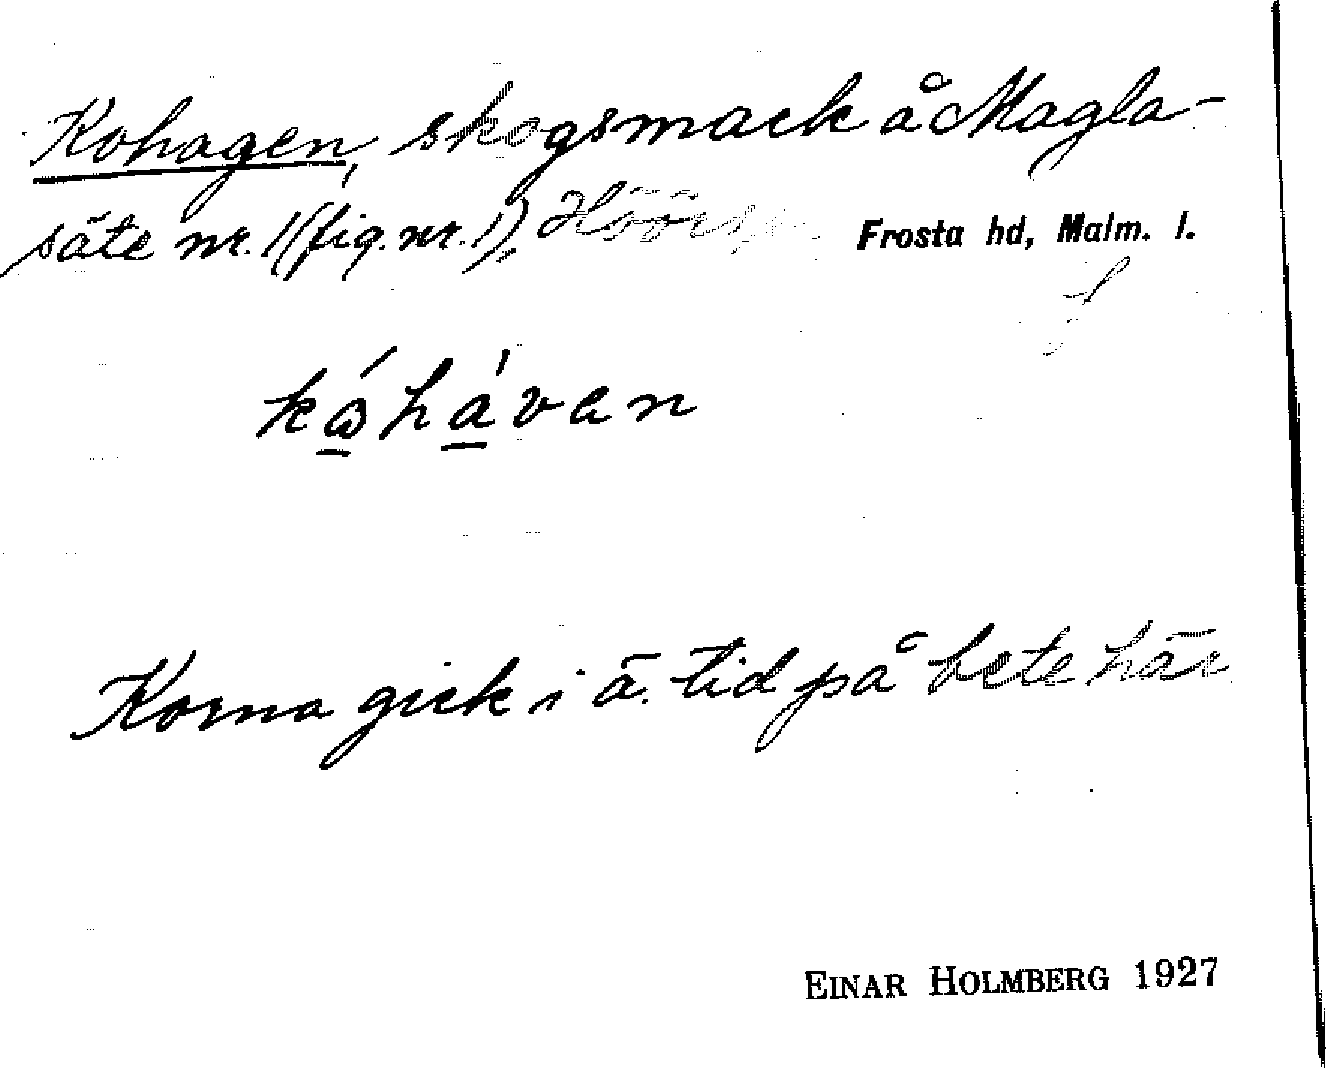 Kohagen, skogsmark å Magla-
säte nr. 1 (fig. nr. 1), Höörs sn Frosta hd, Malm. l.
kåhávan
Korna gick i ä. tid på bete här.
EINAR HOLMBERG 1927